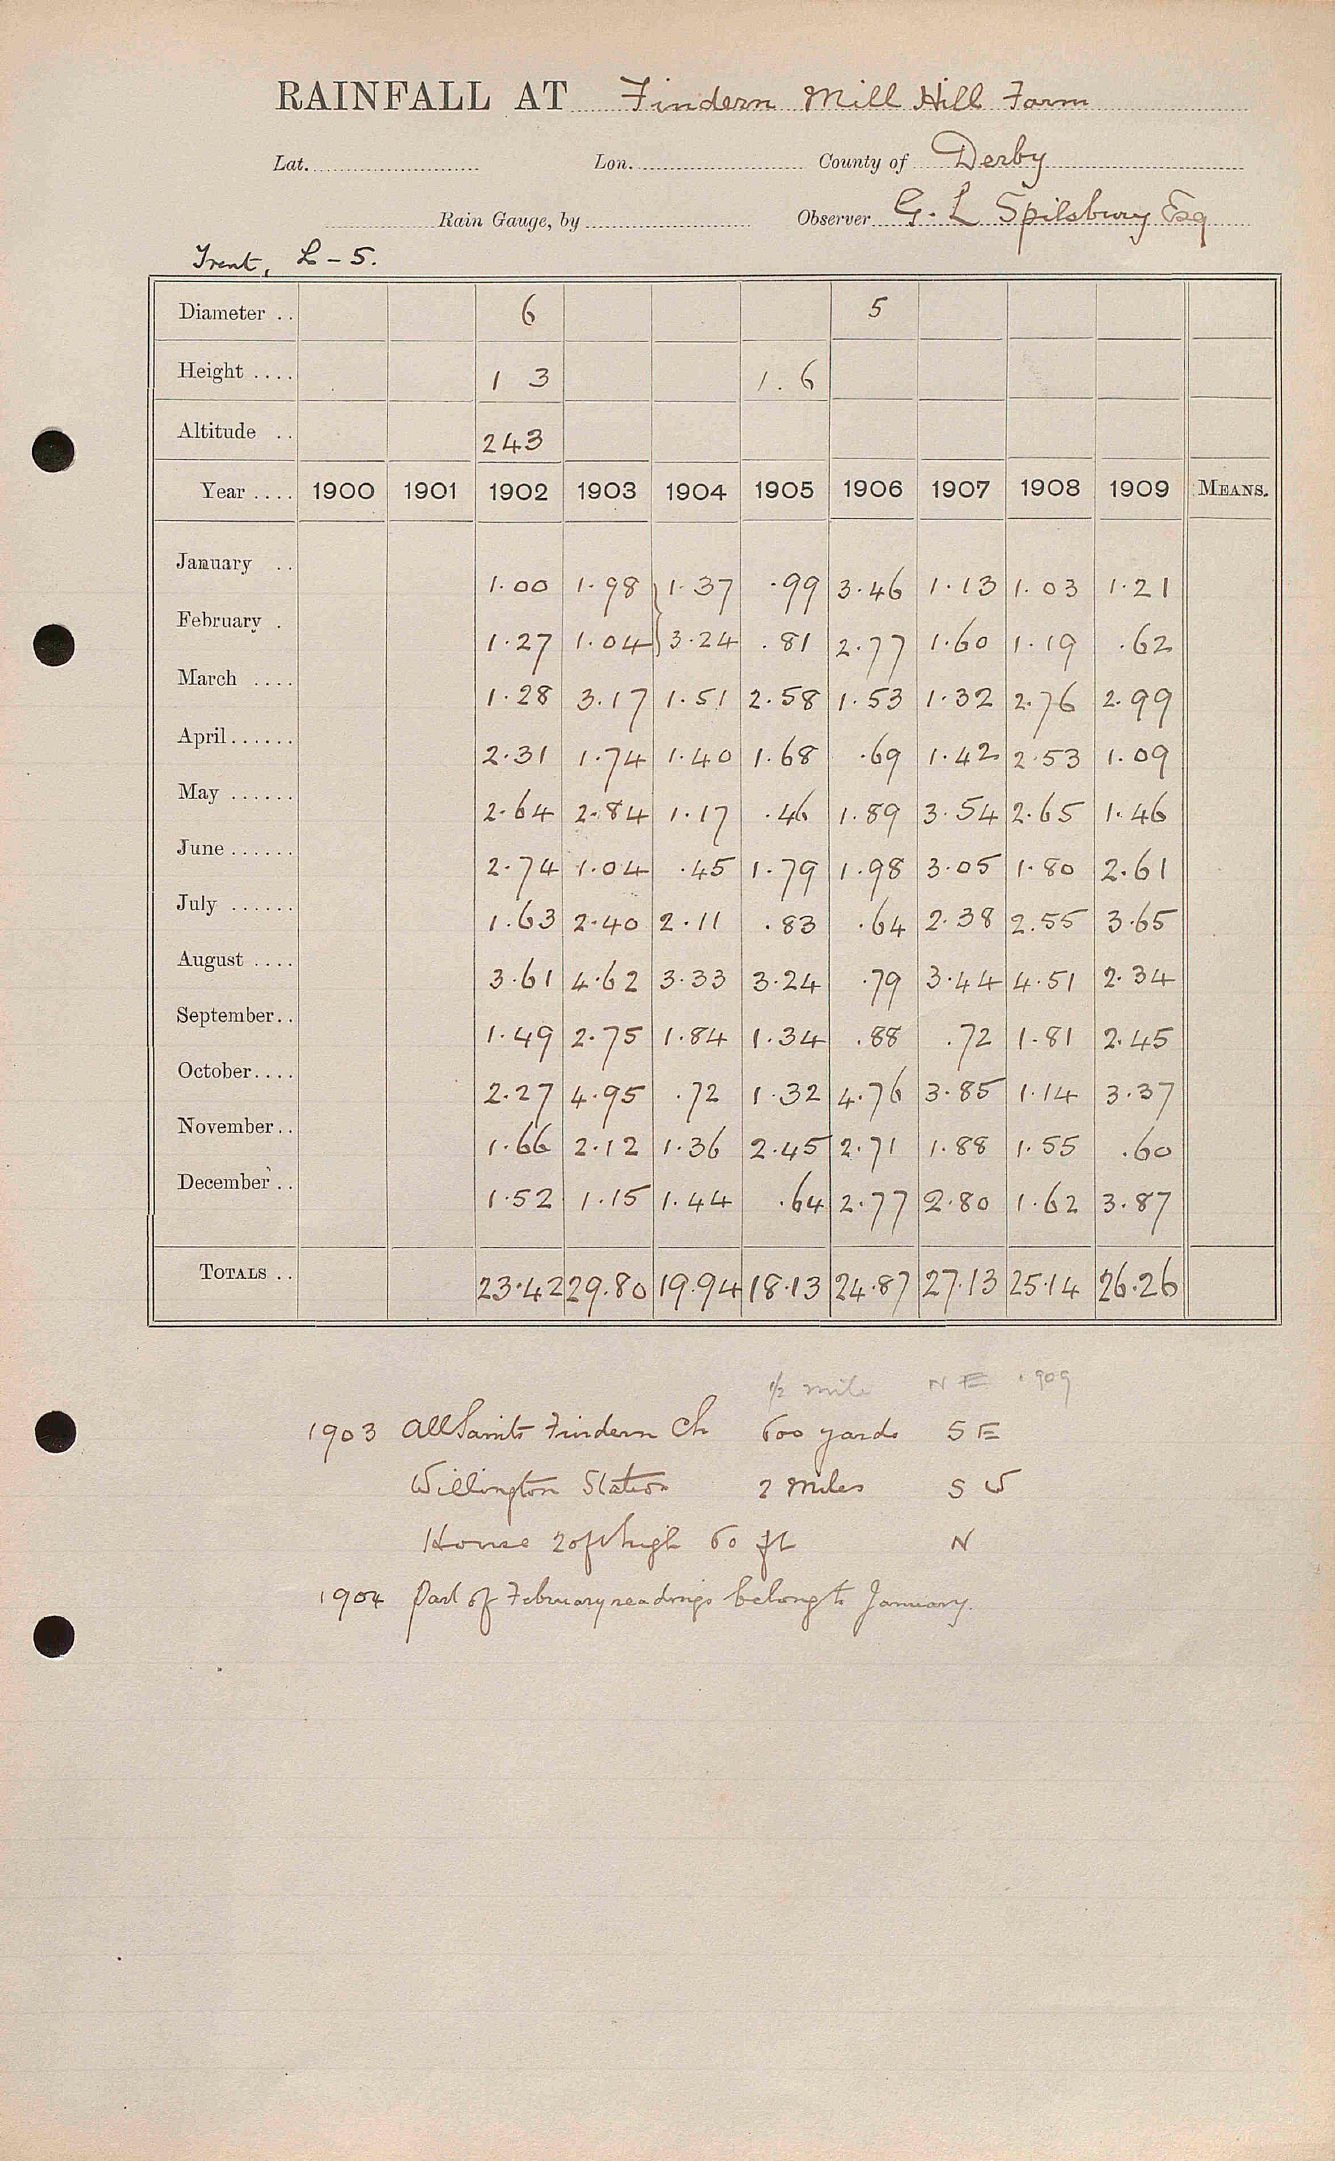 RAINFALL AT Findern Mill Hill Farm
Lat. Lon. County of Derby
Rain Gauge, by Observer G. L Spilsbury Esq
Trent, L - 5.
Diameter .. 6 5
Height .... 1 3 1.6
Altitude .. 243
Year .... 1900 1901 1902 1903 1904 1905 1906 1907 1908 1909 MEANS.
January .. 1.00 1.98 1.37 .99 3.46 1.13 1.03 1.21
February . 1.27 1.04 3.24 .81 2.77 1.60 1.19 .62
March .... 1.28 3.17 1.51 2.58 1.53 1.32 2.76 2.99
April...... 2.31 1.74 1.40 1.68 .69 1.42 2.53 1.09
May ...... 2.64 2.84 1.17 .46 1.89 3.54 2.65 1.46
June ...... 2.74 1.04 .45 1.79 1.98 3.05 1.80 2.61
July ...... 1.63 2.40 2.11 .83 .64 2.38 2.55 3.65
August .... 3.61 4.62 3.33 3.24 .79 3.44 4.51 2.34
September.. 1.49 2.75 1.84 1.34 .88 .72 1.81 2.45
October.... 2.27 4.95 .72 1.32 4.76 3.85 1.14 3.37
November.. 1.66 2.12 1.36 2.45 2.71 1.88 1.55 .60
December .. 1.52 1.15 1.44 .64 2.77 2.80 1.62 3.87
TOTALS .. 23.42 29.80 19.94 18.13 24.87 27.13 25.14 26.26
½ mile N E 1909
1903 All Saints Findern Ch 600 yards S E
Willington Station 2 miles S W
House 20ft high 60 ft N
1904 Part of February readings belong to January.